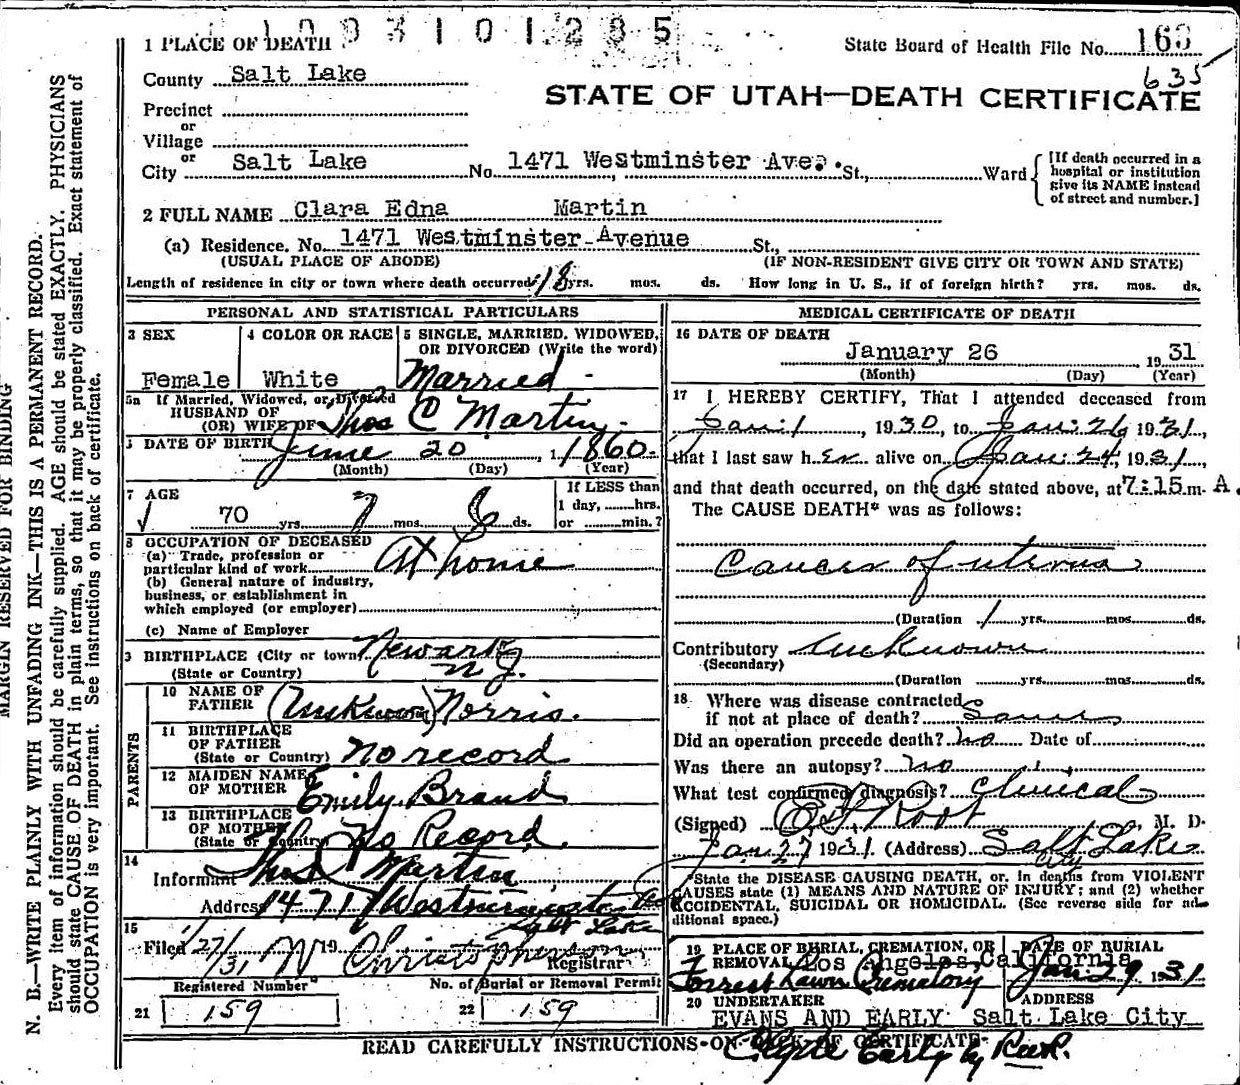 1 9 3 1 0 1 2 8 5
1 PLACE OF DEATH
State Board of Health File No. 163
635
County Salt Lake
STATE OF UTAH—DEATH CERTIFICATE
Precinct
or
Village
or
City Salt Lake No. 1471 Westminster Ave. St., Ward
[If death occurred in a hospital or institution give its NAME instead of street and number.]
2 FULL NAME Clara Edna Martin
(a) Residence. No. 1471 Westminster Avenue St.,
(USUAL PLACE OF ABODE) (IF NON-RESIDENT GIVE CITY OR TOWN AND STATE)
Length of residence in city or town where death occurred 18 yrs. mos. ds. How long in U. S., if of foreign birth? yrs. mos. ds.
PERSONAL AND STATISTICAL PARTICULARS
3 SEX
Female
4 COLOR OR RACE
White
5 SINGLE, MARRIED, WIDOWED, OR DIVORCED (Write the word)
Married
5a If Married, Widowed, or Divorced
HUSBAND OF
(OR) WIFE OF Thos C Martin
DATE OF BIRTH June 20, 1860
(Month) (Day) (Year)
7 AGE
70 yrs 7 mos. 6 ds.
If LESS than
1 day, hrs.
or min.?
8 OCCUPATION OF DECEASED
(a) Trade, profession or
particular kind of work At home
(b) General nature of industry,
business, or establishment in
which employed (or employer)
(c) Name of Employer
9 BIRTHPLACE (City or town) Newark
(State or Country) N J.
PARENTS
10 NAME OF FATHER (Unknown) Norris.
11 BIRTHPLACE OF FATHER
(State or Country) No record
12 MAIDEN NAME OF MOTHER Emily Brand
13 BIRTHPLACE OF MOTHER
(State or Country) No Record.
14
Informant Thos C Martin
Address 1471 Westminster Ave
Salt Lake
15
Filed 1/27/31 19 Christopherson
Registrar
Registered Number No. of Burial or Removal Permit
21 159 22 159
MEDICAL CERTIFICATE OF DEATH
16 DATE OF DEATH
January 26 1931
(Month) (Day) (Year)
17 I HEREBY CERTIFY, That I attended deceased from
Jan. 1, 1930, to Jan. 26 1931,
that I last saw her alive on Jan. 24, 1931,
and that death occurred, on the date stated above, at 7:15 m. A.
The CAUSE DEATH* was as follows:
Cancer of uterus
(Duration 1 yrs. mos. ds.
Contributory unknown
(Secondary)
(Duration yrs. mos. ds.
18 Where was disease contracted
if not at place of death? same
Did an operation precede death? no Date of
Was there an autopsy? no
What test confirmed diagnosis? Clinical
(Signed) Root, M. D.
Jan 27 1931 (Address) Salt Lake
City
*State the DISEASE CAUSING DEATH, or, in deaths from VIOLENT
CAUSES state (1) MEANS AND NATURE OF INJURY; and (2) whether
ACCIDENTAL, SUICIDAL OR HOMICIDAL. (See reverse side for ad-
ditional space.)
19 PLACE OF BURIAL, CREMATION, OR
REMOVAL Los Angeles, California
Forrest Lawn Crematory
DATE OF BURIAL
Jan. 29 1931
20 UNDERTAKER
EVANS AND EARLY
ADDRESS
Salt Lake City
READ CAREFULLY INSTRUCTIONS ON BACK OF CERTIFICATE
Clyde Early by
MARGIN RESERVED FOR BINDING
N. B.—WRITE PLAINLY WITH UNFADING INK—THIS IS A PERMANENT RECORD.
Every item of information should be carefully supplied. AGE should be stated EXACTLY. PHYSICIANS
should state CAUSE OF DEATH in plain terms, so that it may be properly classified. Exact statement of
OCCUPATION is very important. See instructions on back of certificate.